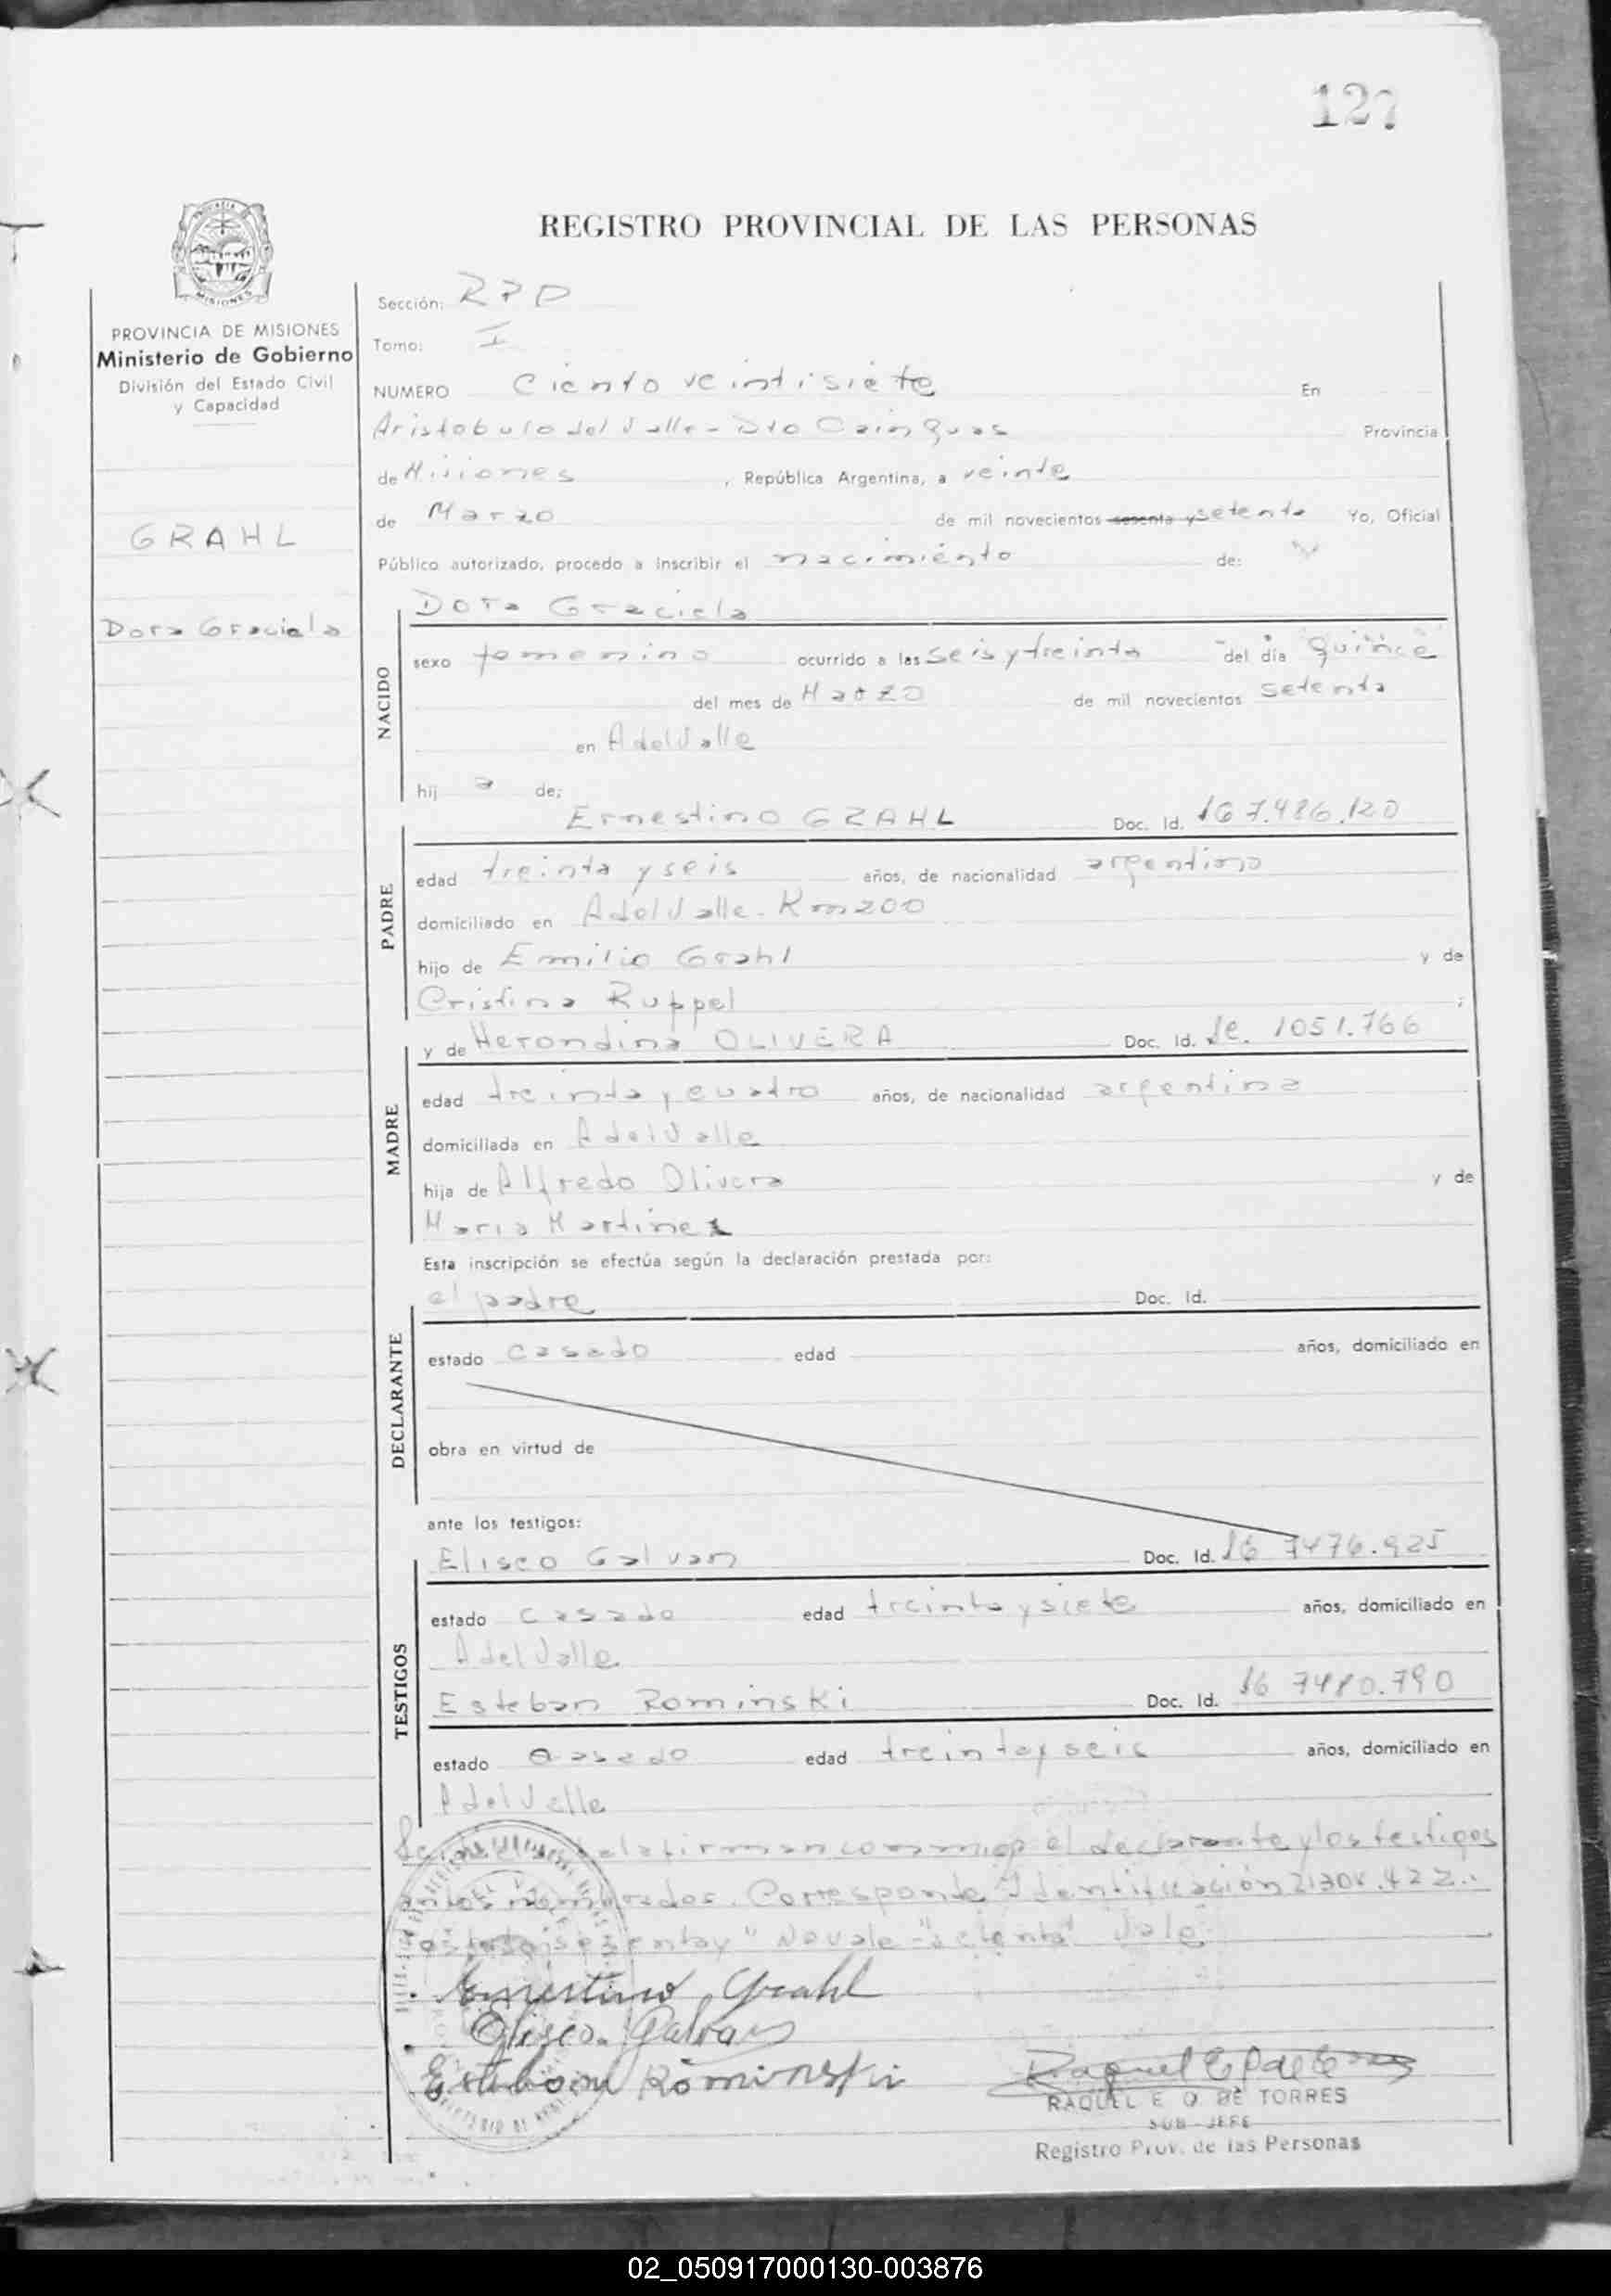 127
REGISTRO PROVINCIAL DE LAS PERSONAS
PROVINCIA DE MISIONES
Ministerio de Gobierno
División del Estado Civil
y Capacidad
GRAHL
Dora Graciela
Sección: RPD
Tomo: I
NUMERO Ciento veintisiete En
Aristobulo del Valle - Dto Cainguas Provincia
de Misiones , República Argentina, a veinte
de Marzo de mil novecientos sesenta y setenta Yo, Oficial
Público autorizado, procedo a inscribir el nacimiento de:
Dora Graciela
NACIDO
sexo femenino ocurrido a las seis y treinta del día quince
del mes de Marzo de mil novecientos setenta
en AdelValle
hij a de:
Ernestino GRAHL Doc. Id. 7.486.120
PADRE
edad treinta y seis años, de nacionalidad argentino
domiciliado en AdelValle - Km 200
hijo de Emilio Grahl y de
Cristina Ruppel ;
y de Herondina OLIVERA Doc. Id. 1051.766
MADRE
edad treinta y cuatro años, de nacionalidad argentina
domiciliada en AdelValle
hija de Alfredo Olivera y de
Maria Martinez
Esta inscripción se efectúa según la declaración prestada por:
el padre Doc. Id.
DECLARANTE
estado casado edad años, domiciliado en
obra en virtud de
ante los testigos:
Eliseo Galvan Doc. Id. 7476.925
TESTIGOS
estado casado edad treinta y siete años, domiciliado en
AdelValle
Esteban Rominski Doc. Id. 7480.790
estado casado edad treinta y seis años, domiciliado en
AdelValle
firman conmigo el declarante y los testigos
antes nombrados. Corresponde Identificación
"sesenta y" No vale - "setenta" Vale
Ernestino Grahl
Eliseo Galvan
Esteban Rominski
RAQUEL E O DE TORRES
SUB - JEFE
Registro Prov. de las Personas
02_050917000130-003876